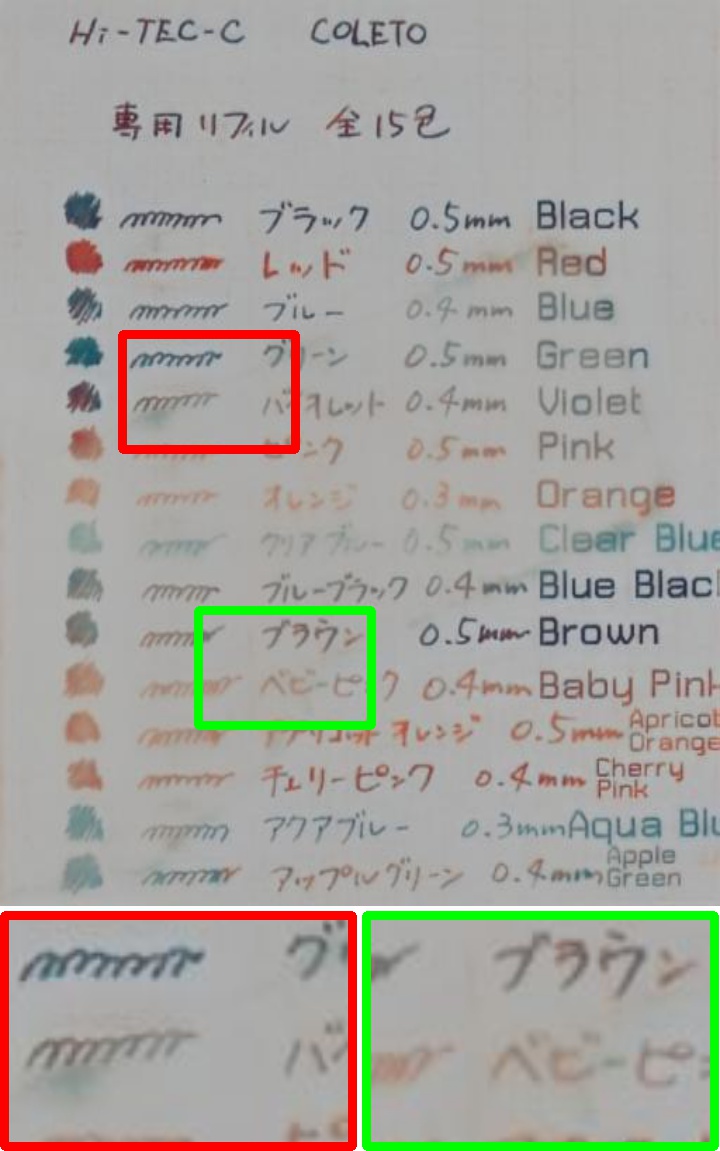 Hi-TEC-C COLETO
専用リフィル 全15色
ブラック 0.5mm Black
レッド 0.5mm Red
ブルー 0.4mm Blue
グリーン 0.5mm Green
バイオレット 0.4mm Violet
ピンク 0.5mm Pink
オレンジ 0.3mm Orange
クリアブルー 0.5mm Clear Blue
ブルーブラック 0.4mm Blue Blac
ブラウン 0.5mm Brown
ベビーピンク 0.4mm Baby Pink
アプリコットオレンジ 0.5mm Apricot Orange
チェリーピンク 0.4mm Cherry Pink
アクアブルー 0.3mm Aqua Blu
アップルグリーン 0.4mm Apple Green
グ
バ
ブラウン
ベビーピ